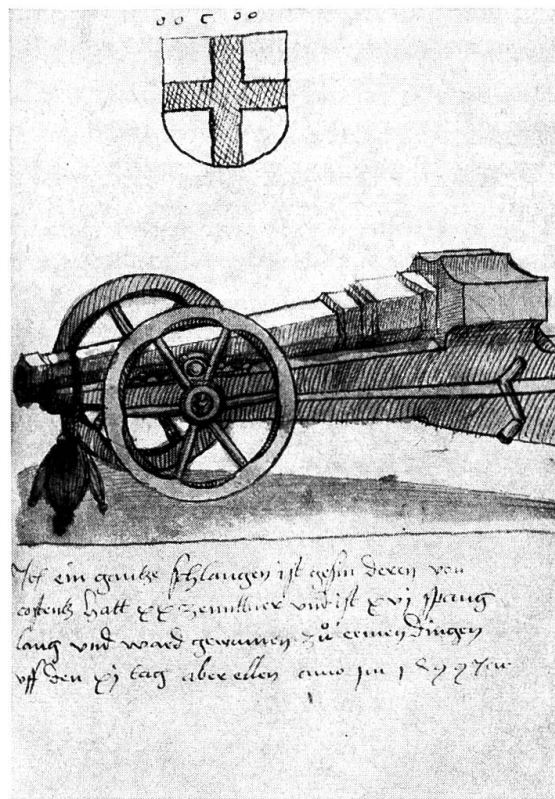 o o C o o
Jtem ein gantze schlangen ist gesin deren von
costentz hatt xx zenttner und ist xvj spang
lang und ward gewunnen zů ermendingen
uff den xj tag aber ellen anno im 1499 Jar